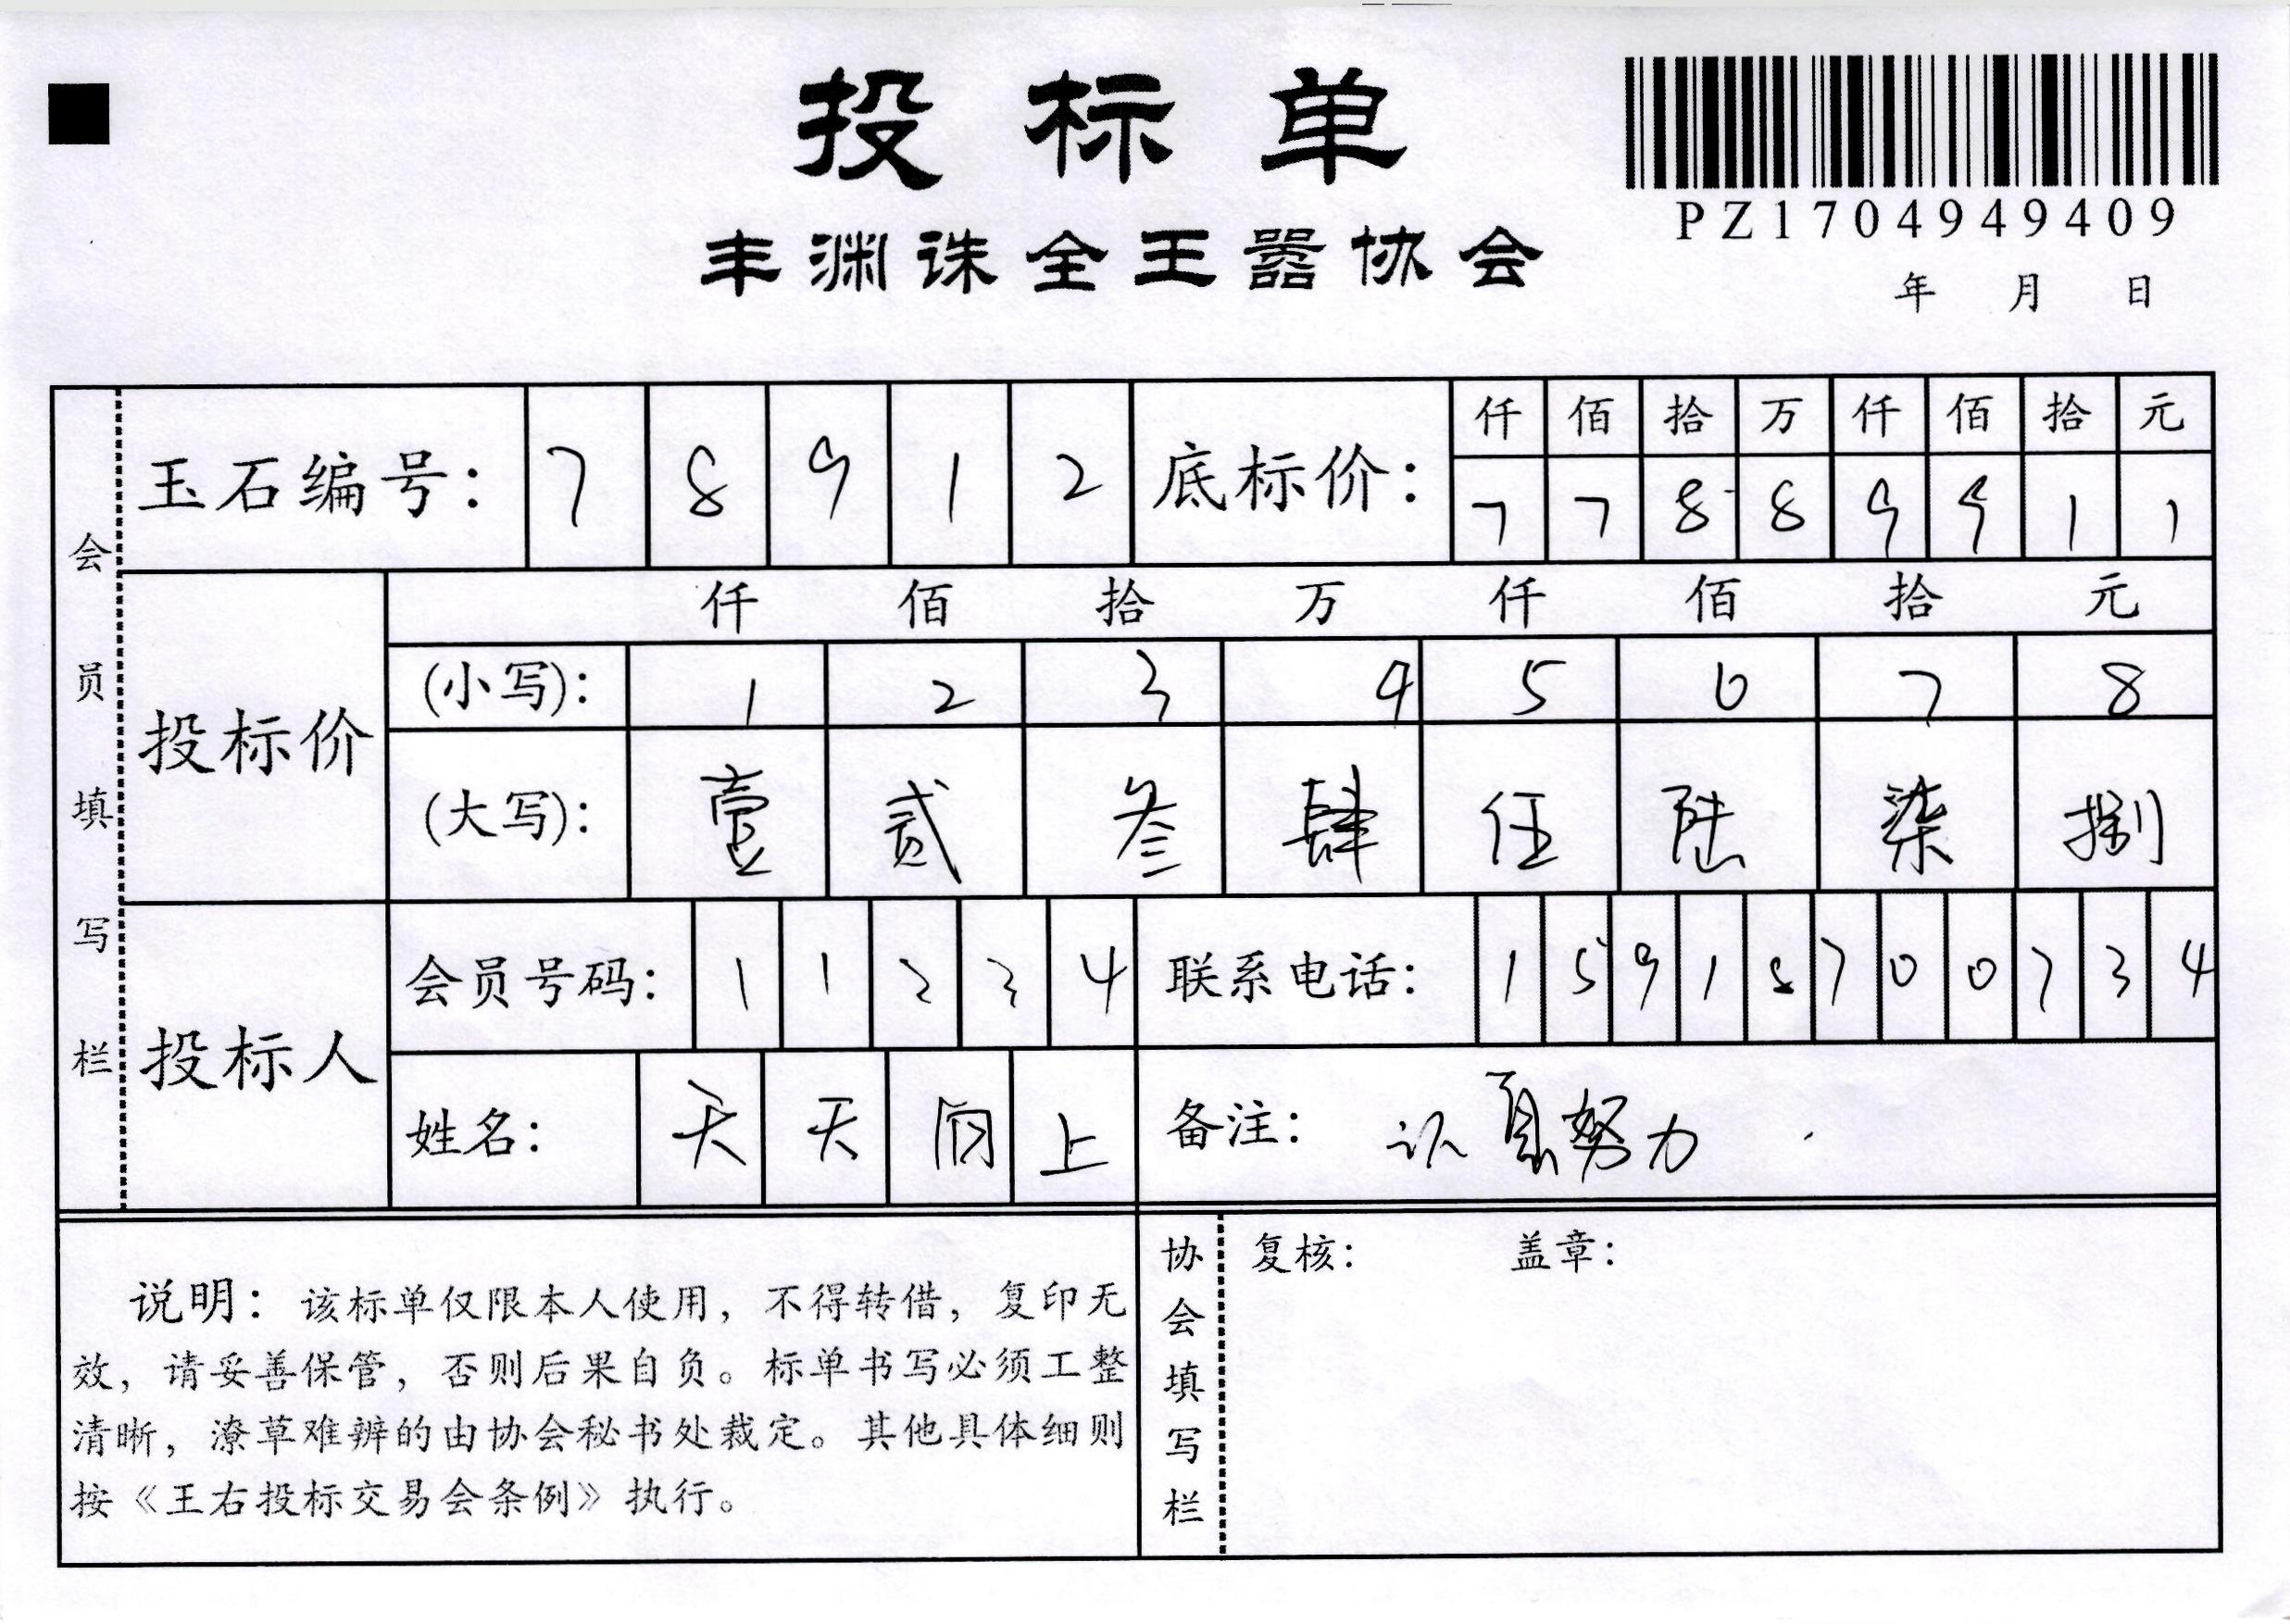 投标单
丰渊诛全王嚣协会
PZ1704949409
年 月 日
会员填写栏
玉石编号: 7 8 9 1 2
底标价: 仟 佰 拾 万 仟 佰 拾 元
7 7 8 8 9 9 1 1
投标价
仟 佰 拾 万 仟 佰 拾 元
(小写): 1 2 3 4 5 6 7 8
(大写): 壹 贰 叁 肆 伍 陆 柒 捌
投标人
会员号码: 1 1 2 3 4
联系电话: 1 5 9 1 8 7 0 0 7 3 4
姓名: 天 天 向 上
备注: 努力
说明: 该标单仅限本人使用，不得转借，复印无
效，请妥善保管，否则后果自负。标单书写必须工整
清晰，潦草难辨的由协会秘书处裁定。其他具体细则
按《王右投标交易会条例》执行。
协会填写栏
复核: 盖章: